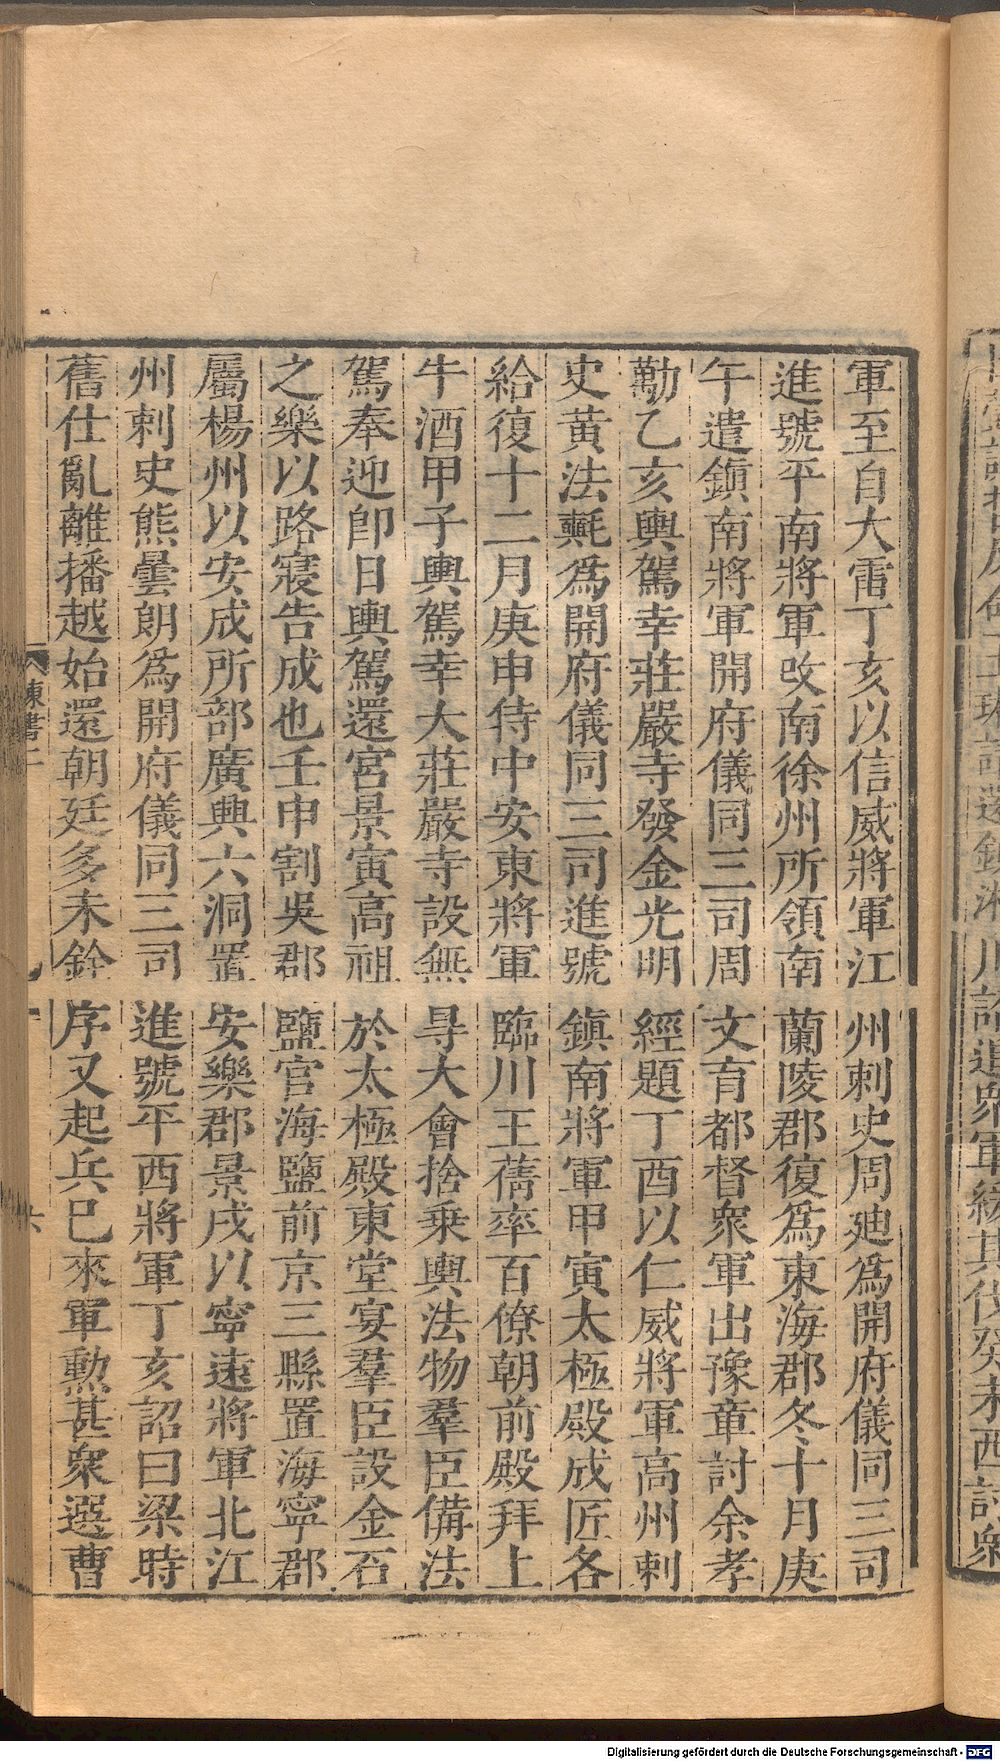 命王琳請還鎮湘川詔追眾軍緩其伐癸未西討眾
軍至自大雷丁亥以信威將軍江州刺史周迪爲開府儀同三司
進號平南將軍改南徐州所領南蘭陵郡復爲東海郡冬十月庚
午遣鎮南將軍開府儀同三司周文育都督眾軍出豫章討余孝
勱乙亥輿駕幸莊嚴寺發金光明經題丁酉以仁威將軍高州刺
史黃法𣰋爲開府儀同三司進號鎮南將軍甲寅太極殿成匠各
給復十二月庚申侍中安東將軍臨川王蒨率百僚朝前殿拜上
牛酒甲子輿駕幸大莊嚴寺設無㝵大會捨乗輿法物羣臣備法
駕奉迎卽日輿駕還宮景寅高祖於太極殿東堂宴羣臣設金石
之樂以路寢告成也壬申割吳郡鹽官海鹽前京三縣置海寧郡
屬楊州以安成所部廣興六洞置安樂郡景戌以寧遠將軍北江
州刺史熊曇朗爲開府儀同三司進號平西將軍丁亥詔曰梁時
舊仕亂離播越始還朝廷多未銓序又起兵巳來軍勲甚眾選曹
陳書二
六
Digitalisierung gefördert durch die Deutsche Forschungsgemeinschaft - DFG